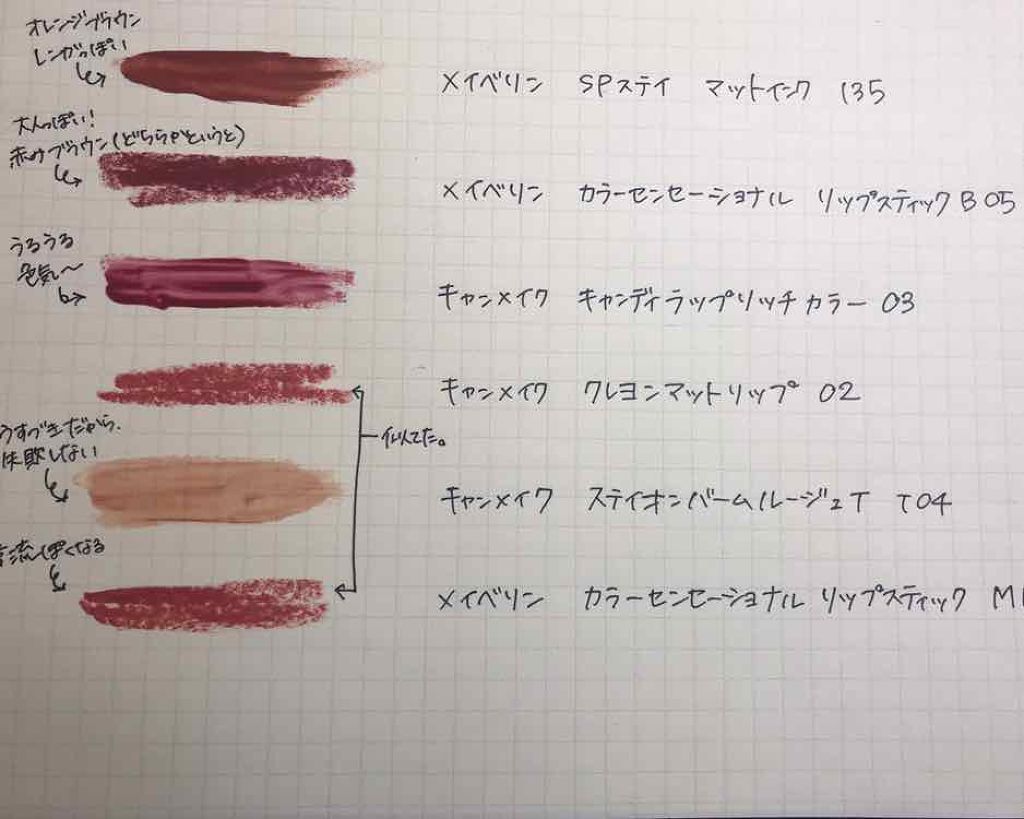 オレンジブラウン
レンガっぽい
メイベリン SPステイ マットインク 135
大人っぽい!
赤みブラウン(どちらかというと)
メイベリン カラーセンセーショナル リップスティック B 05
うるうる
色気〜
キャンメイク キャンディラップリッチカラー 03
キャンメイク クレヨンマットリップ 02
似てた。
うすづきだから、
失敗しない
キャンメイク ステイオンバームルージュT T04
流っぽくなる
メイベリン カラーセンセーショナル リップスティック M